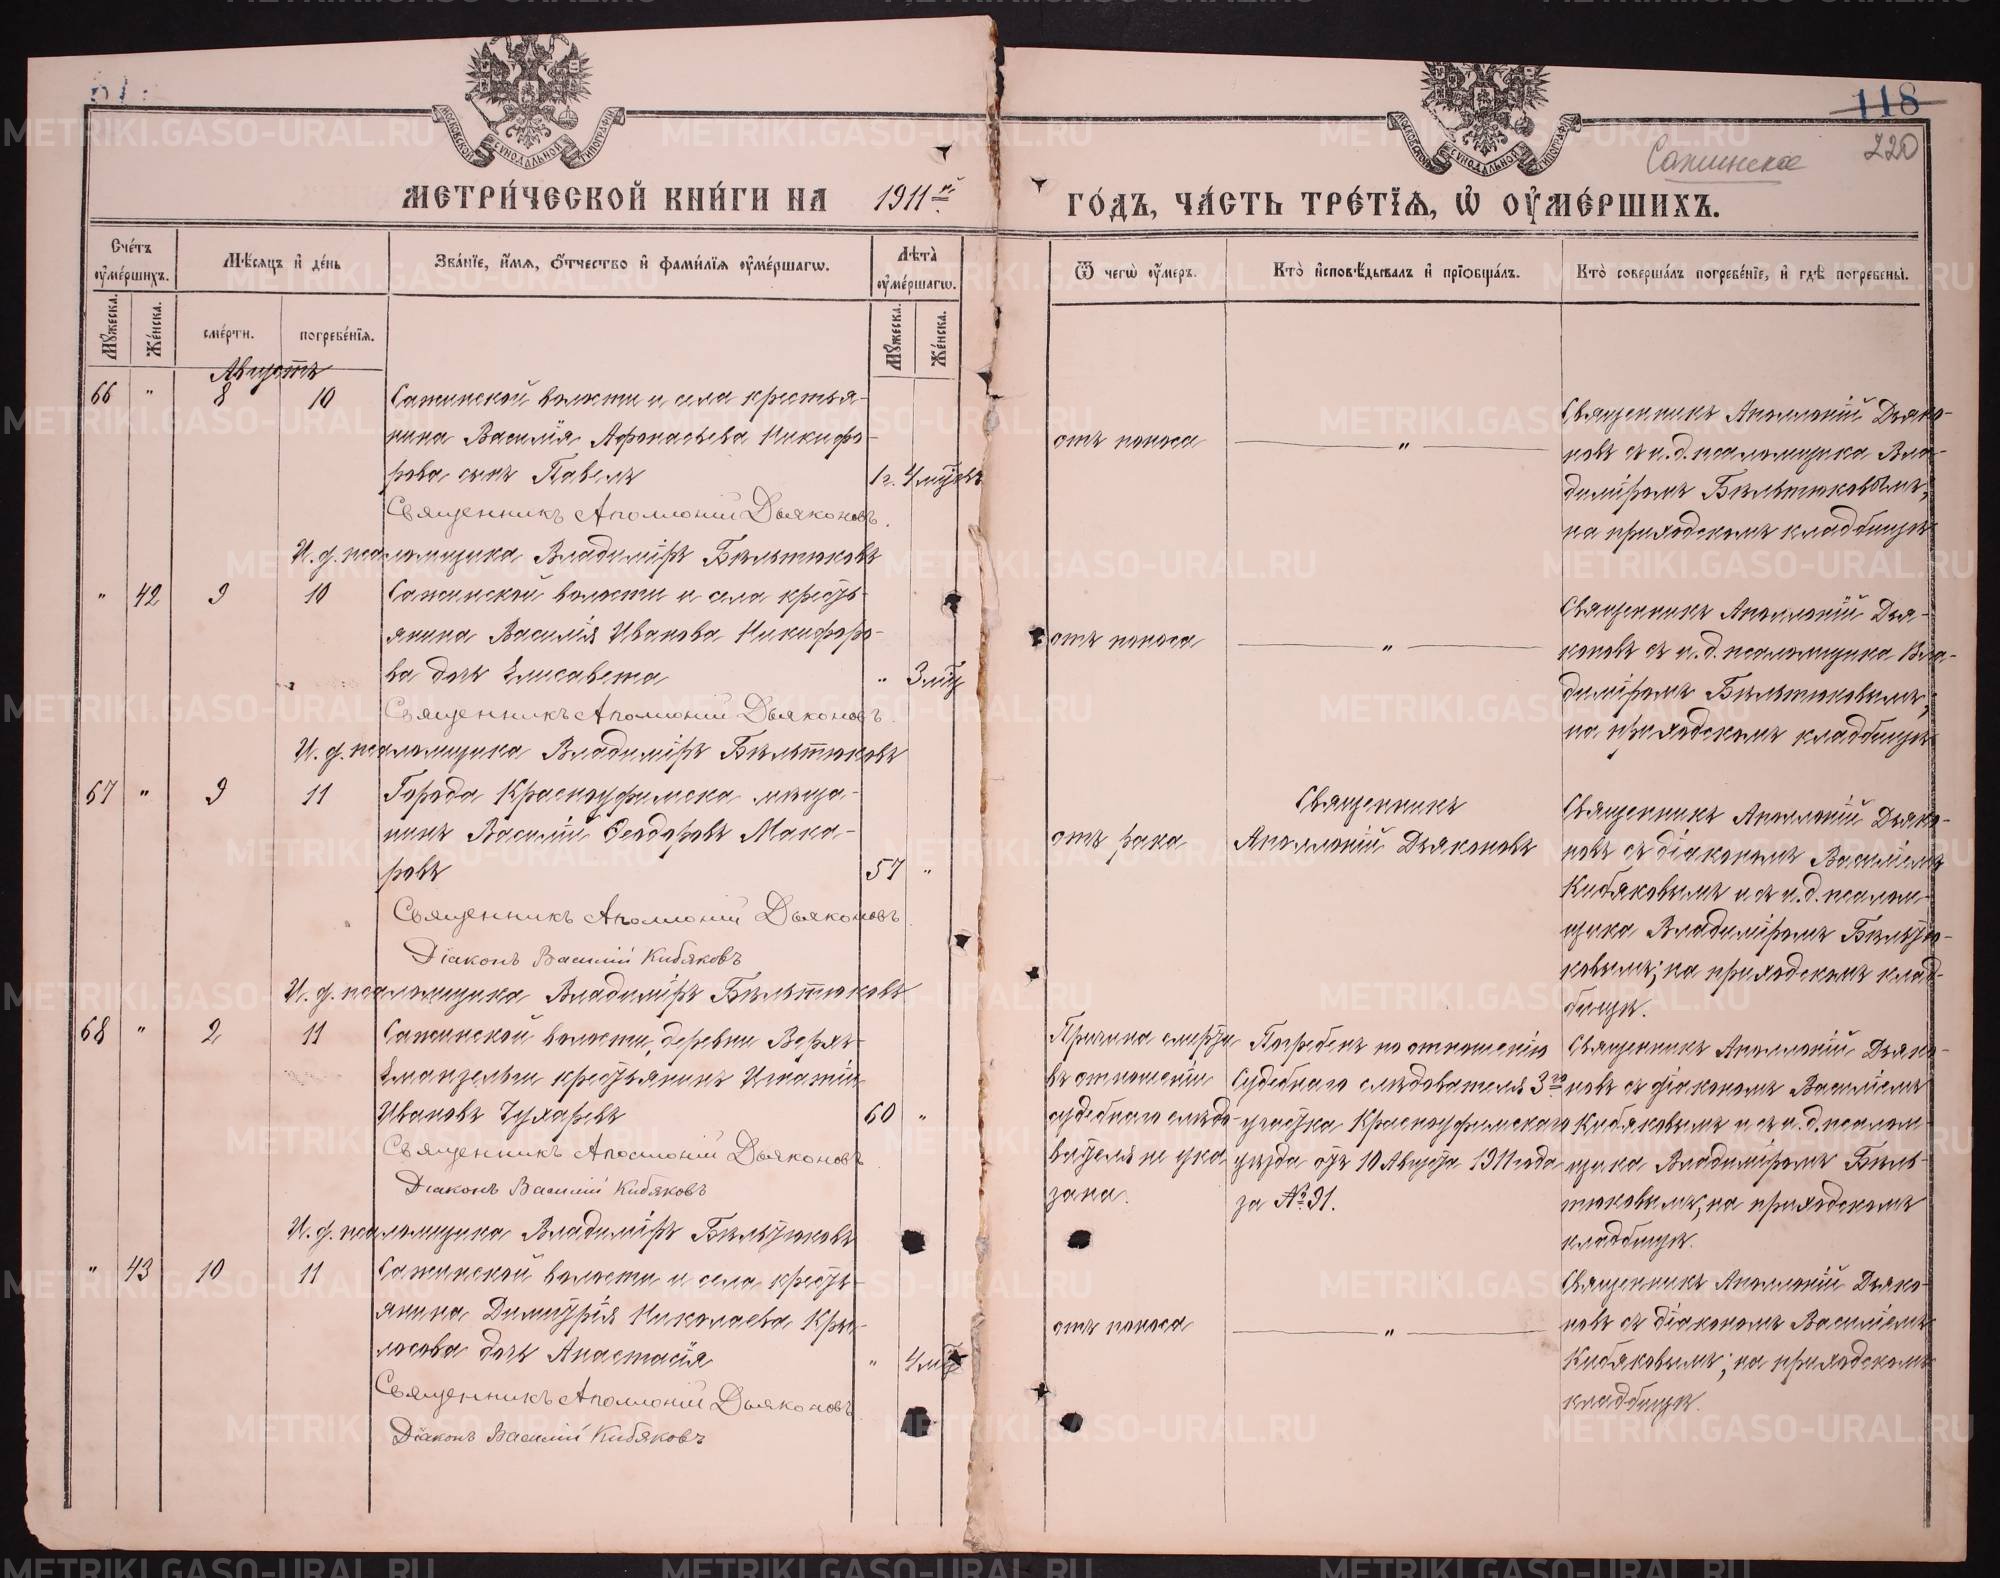 118
220
Сажинское
МОСКОВСКОЙ СѴНОДАЛЬНОЙ ТИПОГРАФІИ
МОСКОВСКОЙ СѴНОДАЛЬНОЙ ТИПОГРАФІИ
МЕТРИ́ЧЕСКОЙ КНИ́ГИ НА 1911й
ГО́ДЪ, ЧА́СТЬ ТРЕ́ТІѦ, Ѡ ОУ҆МЕ́РШИХЪ.
Сче́тъ оу҆ме́ршихъ.
Мѣ́сяцъ и҆ де́нь
Зва́нїе, и҆́мѧ, ѻ҆́тчество и҆ фами́лїѧ оу҆ме́ршагѡ.
Лѣ́та оу҆ме́ршагѡ.
Ѿ чегѡ̀ оу҆́меръ.
Кто̀ и҆сповѣ́дывалъ и҆ прїѡбща́лъ.
Кто̀ соверша́лъ погребе́нїе, и҆ гдѣ̀ погребены̀.
Мꙋ́жеска. Же́нска. сме́рти. погребе́нїѧ. Мꙋ́жеска. Же́нска.
Августъ
66 " 8 10 Сажинской волости и села крестья-
нина Василія Афонасьева Никифо-
рова сынъ Павелъ 1г. 4 мѣс
Священникъ Аполлоній Дьяконовъ.
И.д. псаломщика Владиміръ Бѣльтюковъ
отъ поноса
"
Священникъ Аполлоній Дьяко-
новъ съ и.д. псаломщика Вла-
диміромъ Бѣльтюковымъ;
на приходскомъ кладбищѣ
" 42 9 10 Сажинской волости и села кресть-
янина Василія Иванова Никифоро-
ва дочь Елисавета " 3 мѣс
Священникъ Аполлоній Дьяконовъ.
И.д. псаломщика Владиміръ Бѣльтюковъ
отъ поноса
"
Священникъ Аполлоній Дья-
коновъ съ и.д. псаломщика Вла-
диміромъ Бѣльтюковымъ;
на приходскомъ кладбищѣ
67 " 9 11 Города Красноуфимска мѣща-
нинъ Василій Ѳеодоровъ Мака-
ровъ 57 "
Священникъ Аполлоній Дьяконовъ
Діаконъ Василій Кибяковъ
И.д. псаломщика Владиміръ Бѣльтюковъ
отъ рака
Священникъ
Аполлоній Дьяконовъ
Священникъ Аполлоній Дьяко-
новъ съ діакономъ Василіемъ
Кибяковымъ и съ и.д. псалом-
щика Владиміромъ Бѣльтю-
ковымъ; на приходскомъ клад-
бищѣ.
68 " 2 11 Сажинской волости, деревни Верхъ-
крестьянинъ Игнатій
Ивановъ Чухаревъ 60 "
Священникъ Аполлоній Дьяконовъ
Діаконъ Василій Кибяковъ
И.д. псаломщика Владиміръ Бѣльтюковъ
Причина смерти
въ отношеніи
судебнаго слѣдо-
вателя не ука
зана.
Погребенъ по отношенію
Судебнаго слѣдователя 3го
участка Красноуфимскаго
уѣзда отъ 10 Августа 1911 года
за № 91.
Священникъ Аполлоній Дьяко-
новъ съ діакономъ Василіемъ
Кибяковымъ и съ и.д. псалом-
щика Владиміромъ Бѣль-
тюковымъ; на приходскомъ
кладбищѣ.
" 43 10 11 Сажинской волости и села кресть-
янина Димитрія Николаева Кры-
лосова дочь Анастасія " 4 мѣс
Священникъ Аполлоній Дьяконовъ
Діаконъ Василій Кибяковъ
отъ поноса
"
Священникъ Аполлоній Дьяко-
новъ съ діакономъ Василіемъ
Кибяковымъ; на приходскомъ
кладбищѣ.
METRIKI.GASO-URAL.RU